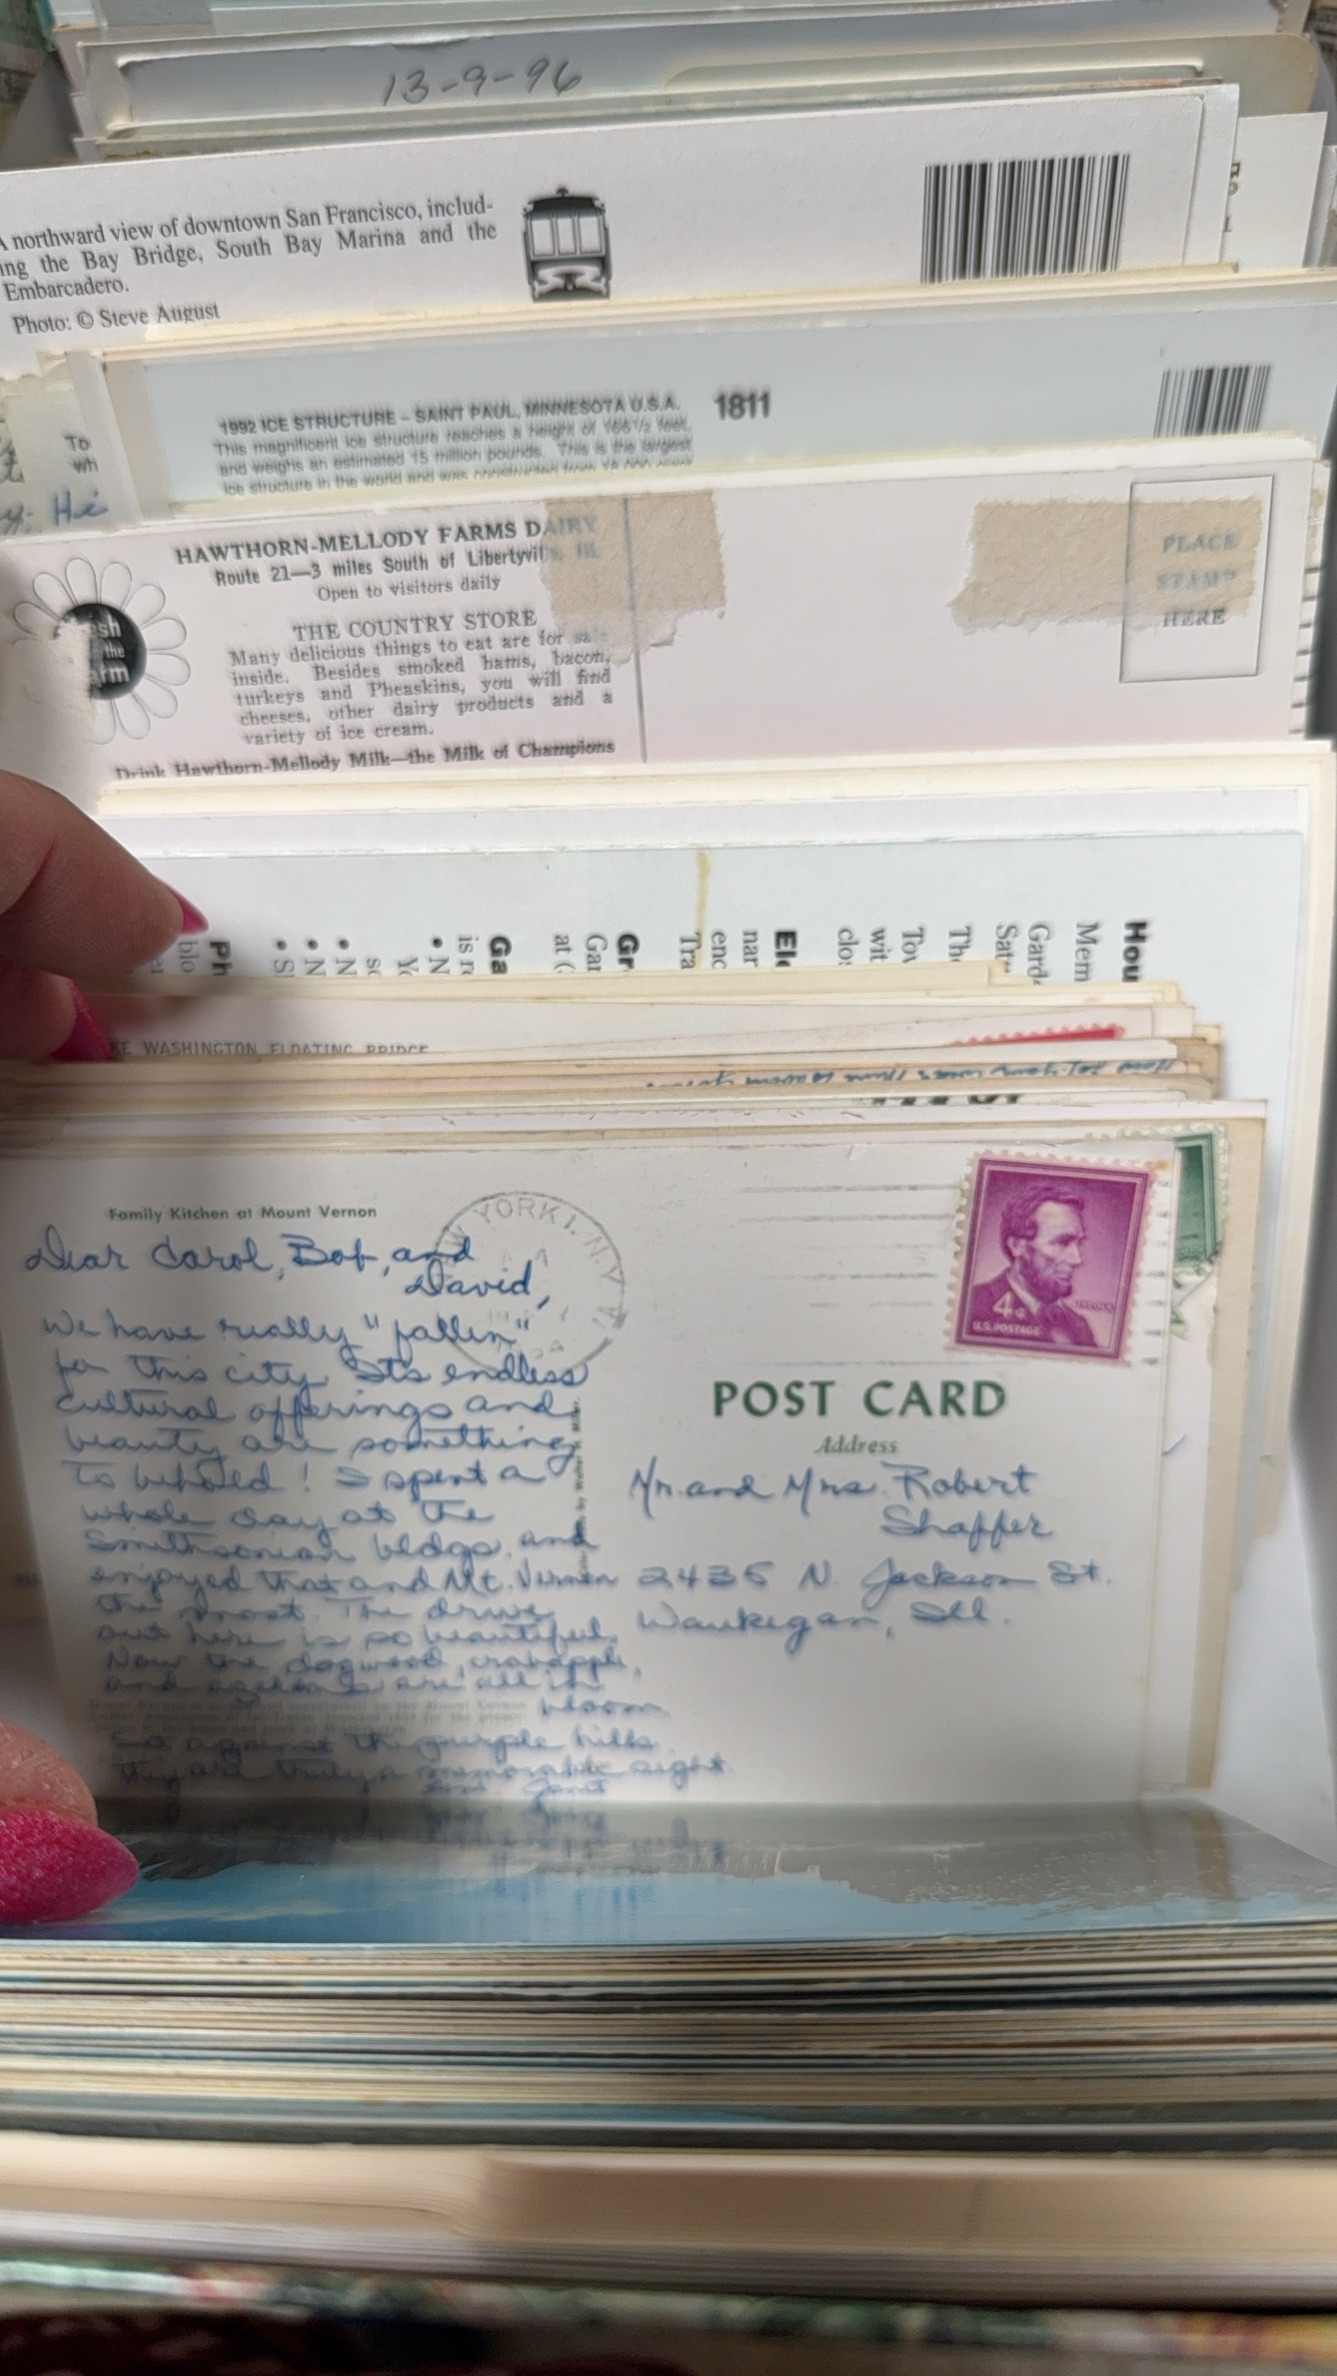 13-9-96
A northward view of downtown San Francisco, includ-
ing the Bay Bridge, South Bay Marina and the
Embarcadero.
Photo: © Steve August
1992 ICE STRUCTURE – SAINT PAUL, MINNESOTA U.S.A. 1811
This magnificent ice structure reaches a height of 166½ feet,
and weighs an estimated 15 million pounds. This is the largest
ice structure in the world and was constructed from
To
wh
Hi
HAWTHORN-MELLODY FARMS DAIRY
Route 21—3 miles South of Libertyville, Ill.
Open to visitors daily
THE COUNTRY STORE
Many delicious things to eat are for sale
inside. Besides smoked hams, bacon,
turkeys and Pheaskins, you will find
cheeses, other dairy products and a
variety of ice cream.
Drink Hawthorn-Mellody Milk—the Milk of Champions
esh
the
arm
PLACE
STAMP
HERE
Hou
Mem
Gard
Satu
Th
Tov
wit
clo
Ele
nar
enc
Tra
Gr
Gar
at (
Ga
is re
• N
Yo
so
• N
• N
• S
Ph
blo
KE WASHINGTON FLOATING BRIDGE
Family Kitchen at Mount Vernon
Dear Carol, Bob, and
David,
We have really "fallen"
for this city. Its endless
cultural offerings and
beauty are something
to behold! I spent a
whole day at the
Smithsonian bldgs. and
enjoyed that and Mt. Vernon
the most. The drive
out here is so beautiful.
Now the dogwood, crabapple,
and are all in
bloom
So against the purple hills
they are truly a memorable sight.
Janet
W YORK 1, N.Y.
4¢
LINCOLN
U.S. POSTAGE
POST CARD
Address
Mr. and Mrs. Robert
Shaffer
2435 N. Jackson St.
Waukegan, Ill.